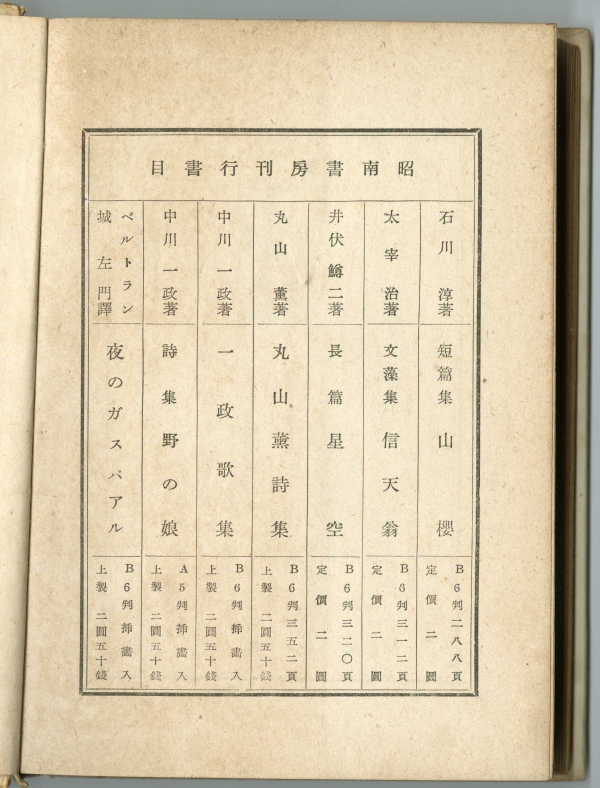 昭南書房刊行書目
石川淳著
短篇集山櫻
B6判二八八頁
定價二圓
太宰治著
文藻集信天翁
B6判三一二頁
定價二圓
井伏鱒二著
長篇星空
B6判三二〇頁
定價二圓
丸山薫著
丸山薫詩集
B6判三五二頁
上製二圓五十錢
中川一政著
一政歌集
B6判挿畵入
上製二圓五十錢
中川一政著
詩集野の娘
A5判挿畵入
上製二圓五十錢
ベルトラン
城左門譯
夜のガスパアル
B6判挿畵入
上製二圓五十錢